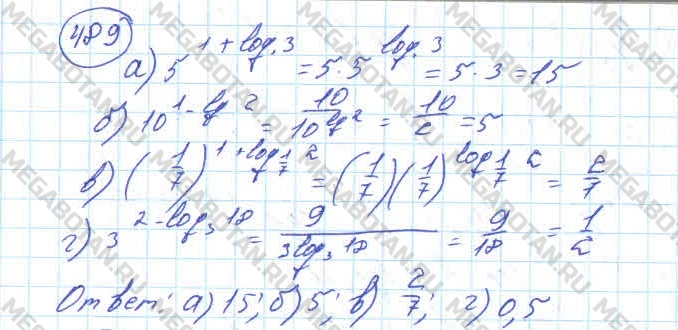 489
а) 5^(1+log₅3) = 5·5^(log₅3) = 5·3 = 15
б) 10^(1-lg 2) = 10/10^(lg 2) = 10/2 = 5
в) (1/7)^(1+log_(1/7) 2) = (1/7)(1/7)^(log_(1/7) 2) = 2/7
г) 3^(2-log₃ 18) = 9/3^(log₃ 18) = 9/18 = 1/2
Ответ: а) 15; б) 5; в) 2/7; г) 0,5
MEGABOTAN.RU